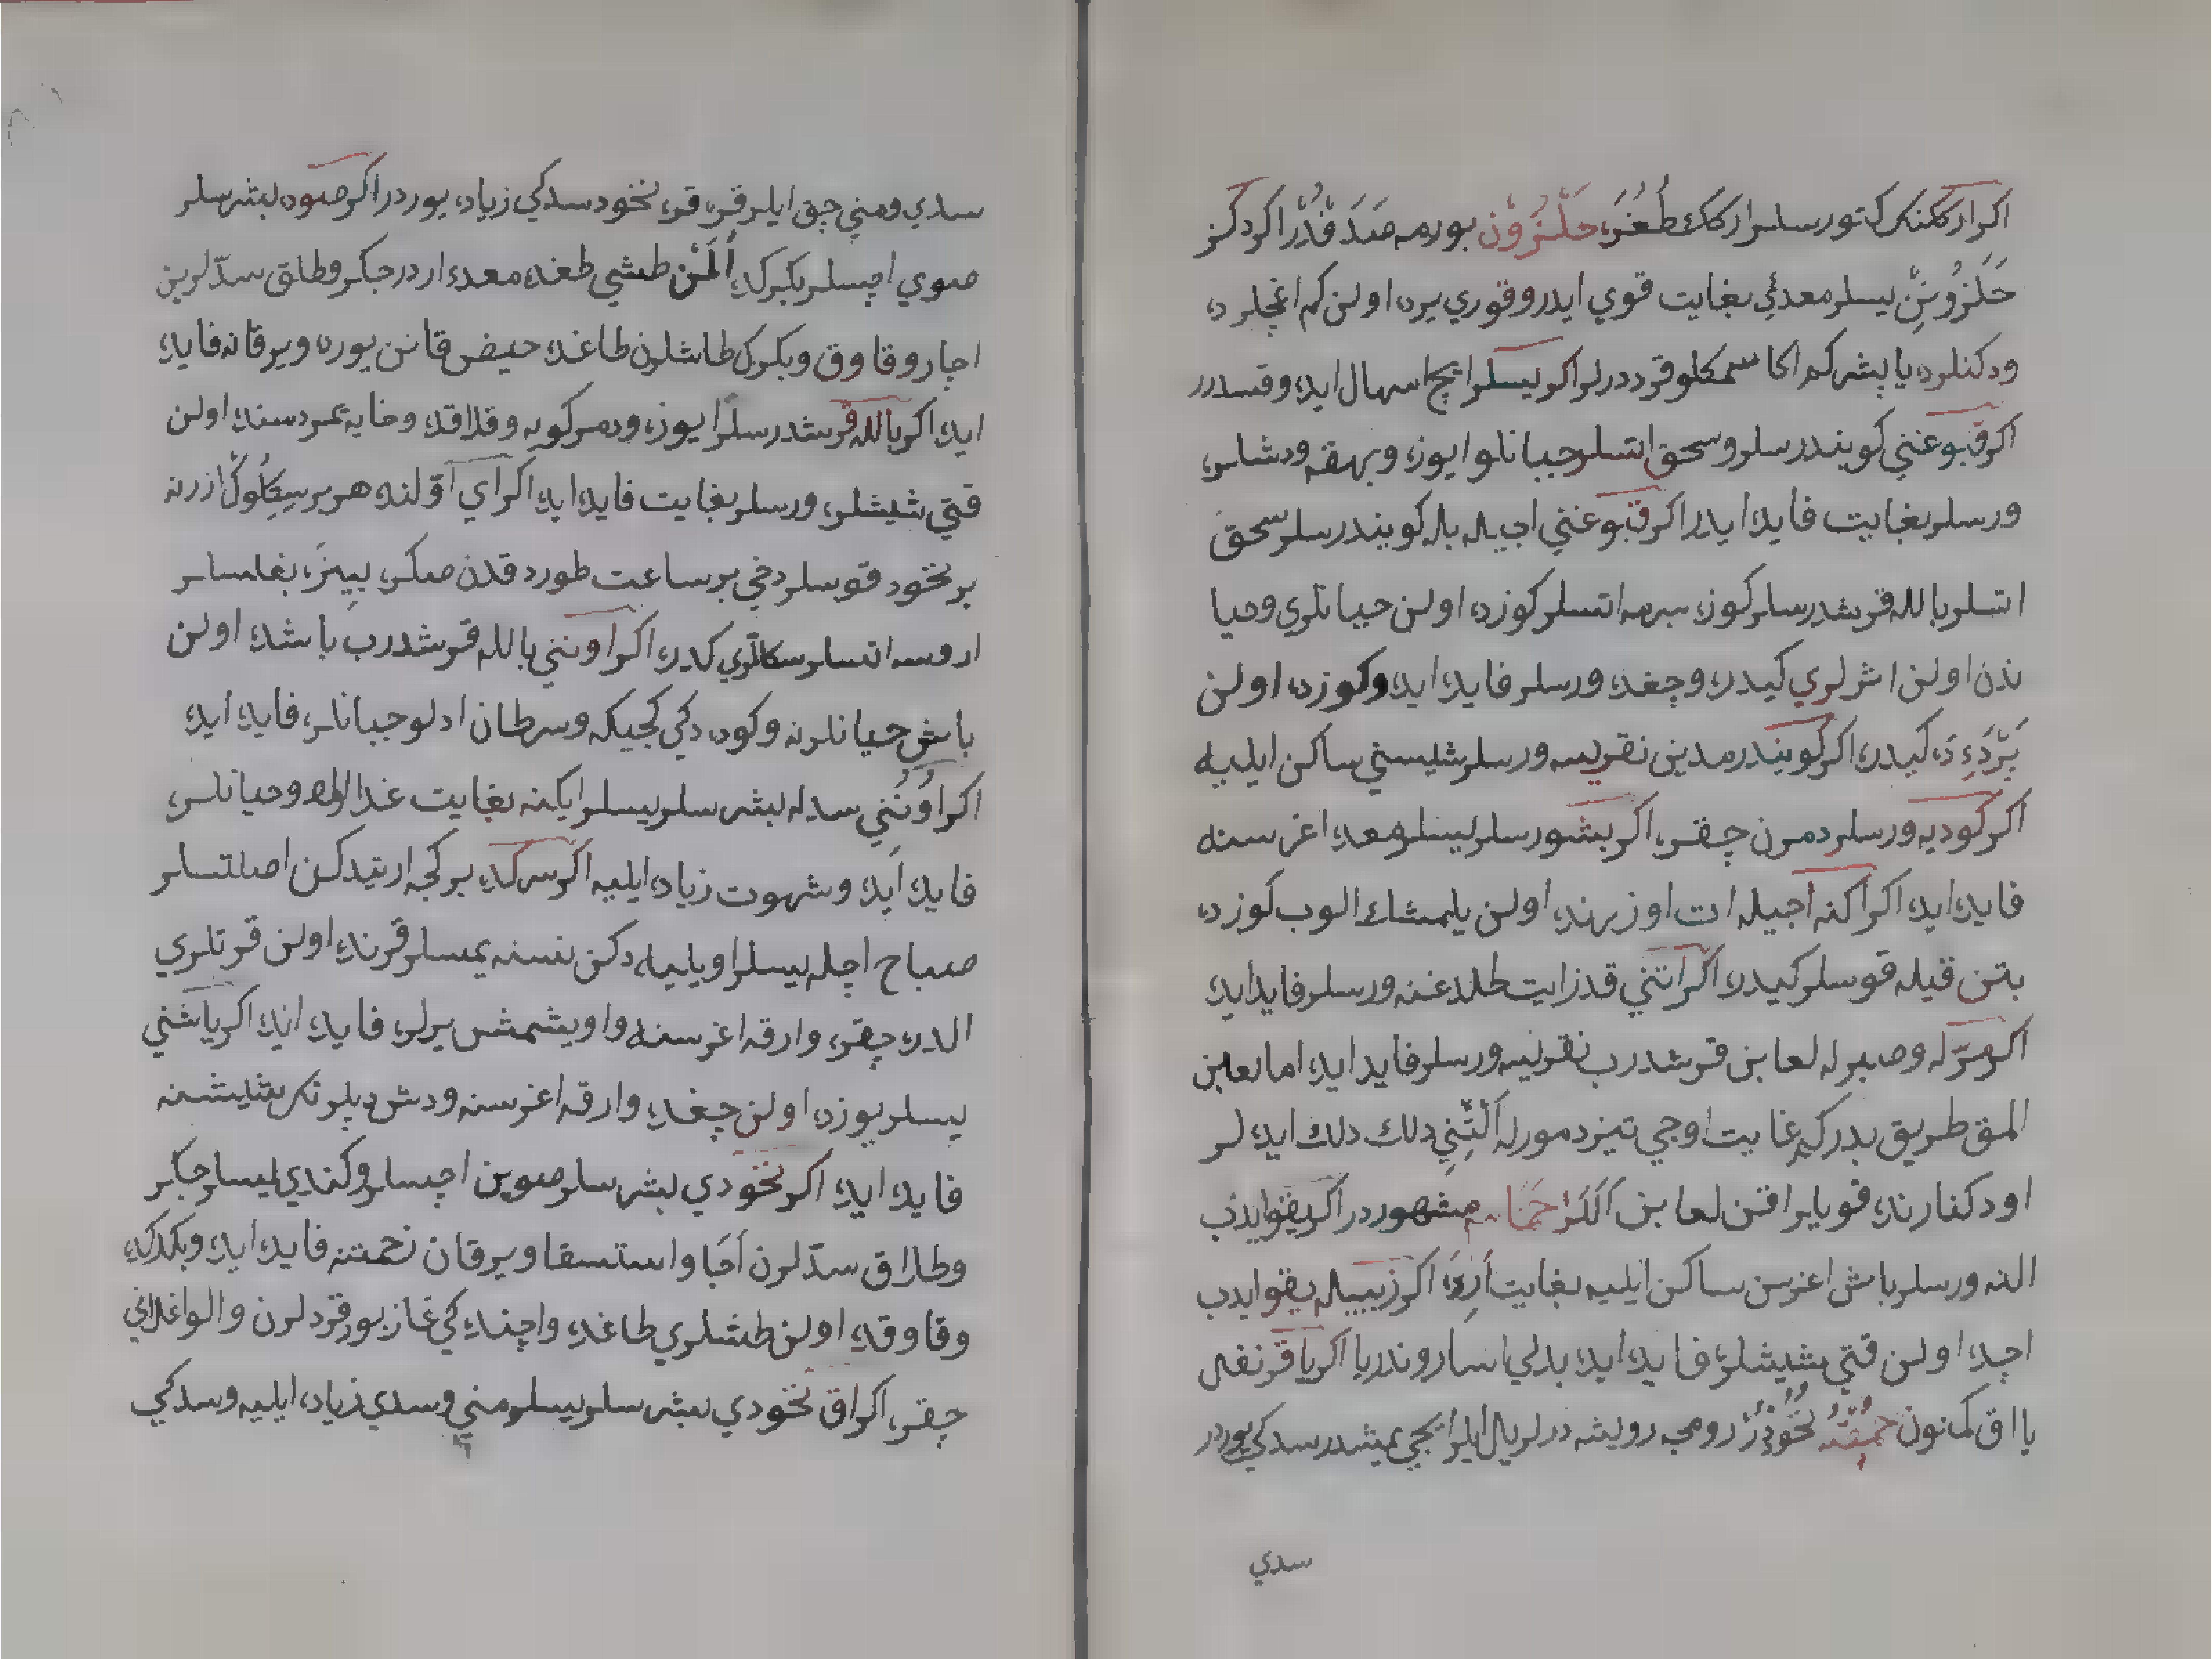 اكر ارككنك كتورسلر ارككك طُغُرَ، حَلَزُوْن بورمه صَدَفْدُرْ اكر دكز
حَلَزُونِنْ يسلر معدئي بغايت قوي ايدر وقوري يرده اولن كم اغچلرده
ودكنلرده يابشر كم اكا سمكلو قرد درلر اكر يسلر ايچ اسهال ايده وقسدرر
اكر قبوغني كويندرسلر وسحق اتسلر جبانلو ايوزه وبهقه ودشلره
ورسلر بغايت فايده ايدر اكر قبوغني اجيله بله كويندرسلر سحق
اتسلر بالله قرشدرسلر كوزه سرمه اتسلر كوزده اولن جبانلري وحيا
ندن اولن اثرلري كيدره وچغده ورسلر فايده ايده وكوزده اولن
كيدره اكر كويندرمدين نقريسه ورسلر شيسني ساكن ايليه
اكر كوديه ورسلر دمرن چقره اكر بشورسلر يسلر معده اغرسنه
فايده ايده اكر اكنه اجيله ات اوزرنده اولن يلمشك الوب كوزده
بتن قيله قوسلر كيدره اكر اتني قدزايت طلدغنه ورسلر فايده ايده
اكر مرّله وصبرله لعابن قرشدرب نقريسه ورسلر فايده ايده اما لعابن
المق طريق بدر كم غايت اوجي تيز دمورله اَتِنِي دلك دلك ايده لر
اودكنارنده قويالر اقن لعابن اَلَلَرْ حَمَام مشهوردر اكر يقو ايدب
النه ورسلر باش اغرسن ساكن ايليه بغايت اكر زيبيله يقو ايدب
اچده اولن قتي شيشلره فايده ايده يدلي اسارونديا اكر يا قرنفل
يا اق كمنون حِمَّصْ نُخُودْدُرْ رومجه رويشه درلر يل ايلر ايچي يمشدر سدكي يوردر
سدي
سدي ومني چق ايلر قره قره نخود سدكي زياده يوردر اكر صوده بشرسلر
صوي اچسلر بكركده اُلَنْ طشي طغده معده اردر جكر وطلق سدّلرين
اجار وقاوق وبكرك طاشلرن طاغده حيض قانن يوره ويرقانه فايده
ايده اكر بالله قرشدرسلر ايوزه ودمركويه وقلاقده وخايه يمردسنده اولن
قتي شيشلره ورسلر بغايت فايده ايده اكر اي اوّلنده هر بر سِكِلُوكْ ازرنه
بر نخود قوسلر دخي بر ساعت طورد قدن صكره بيزه بغلسلر
اروسه اتسلر سكللري كدره اكر اونني بالله قرشدرب باشده اولن
باش جبانلرنه وكوده دكي كجيكه وسرطان ادلو جبانلره فايده ايده
اكر اُونُنِي سدله بشرسلر يسلر ايكنه بغايت غذا اوله وحيانلره
فايده ايده وشهوت زياده ايليه اكر سركده بر كجه ارتيدكن اصلتسلر
صباح اچله يسلر اويليه دكن نسنه يمسلر قرنده اولن قرتلري
الدره چقره وارقه اغرسنه واويشمش يرلره فايده ايده اكر ياشني
يسلر يوزده اولن چغده وارقه اغرسنه ودش ديلرنك شيشنه
فايده ايده اكر نخودي بشرسلر صوين اچسلر وكندي يسلر جكر
وطلاق سدّلرن اَچا واستسقا ويرقان زحمتنه فايده ايده وبكدكده
وقاوقده اولن طشلري طاغده واچنده كي غازبور قردلرن والواغلاني
چقره اكر اق نخودي بشرسلر يسلر مني وسدي زياده ايليه وسدكي